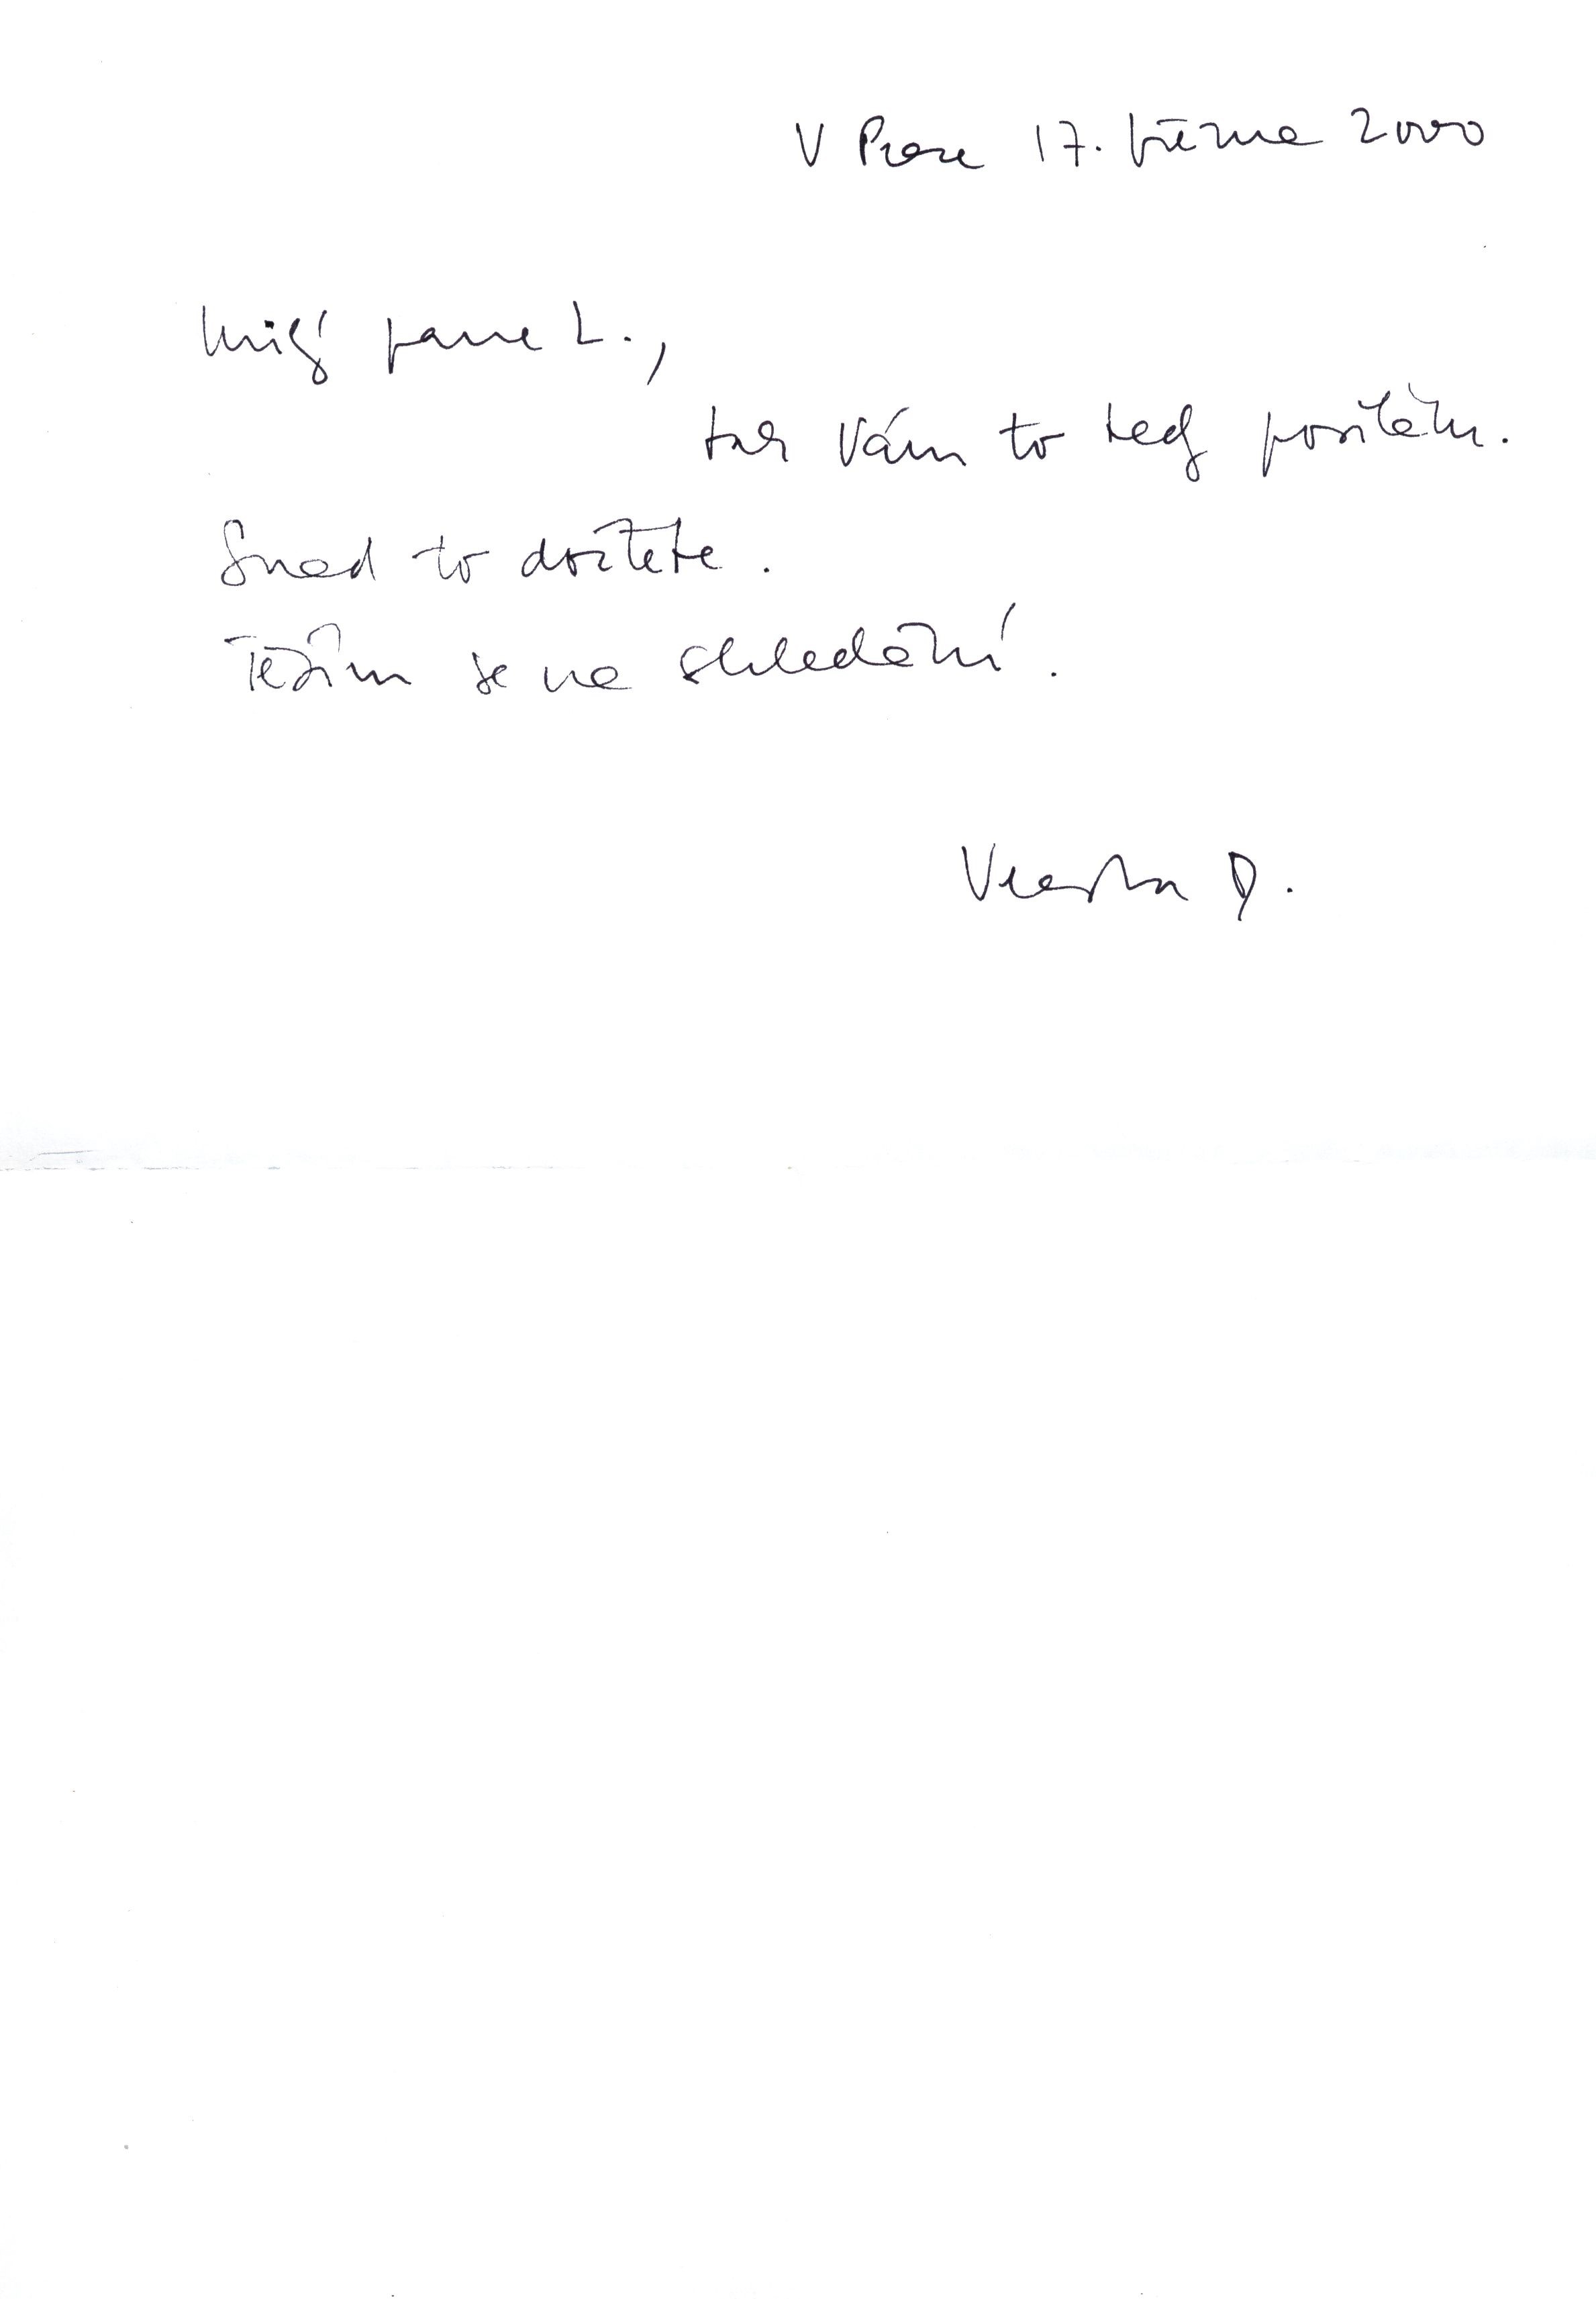 V Praze 17. března 2000
Milý pane L.,
tak Vám to tedy posílám.
Snad to dočtete.
Těším se na shledání.
Vlasta D.